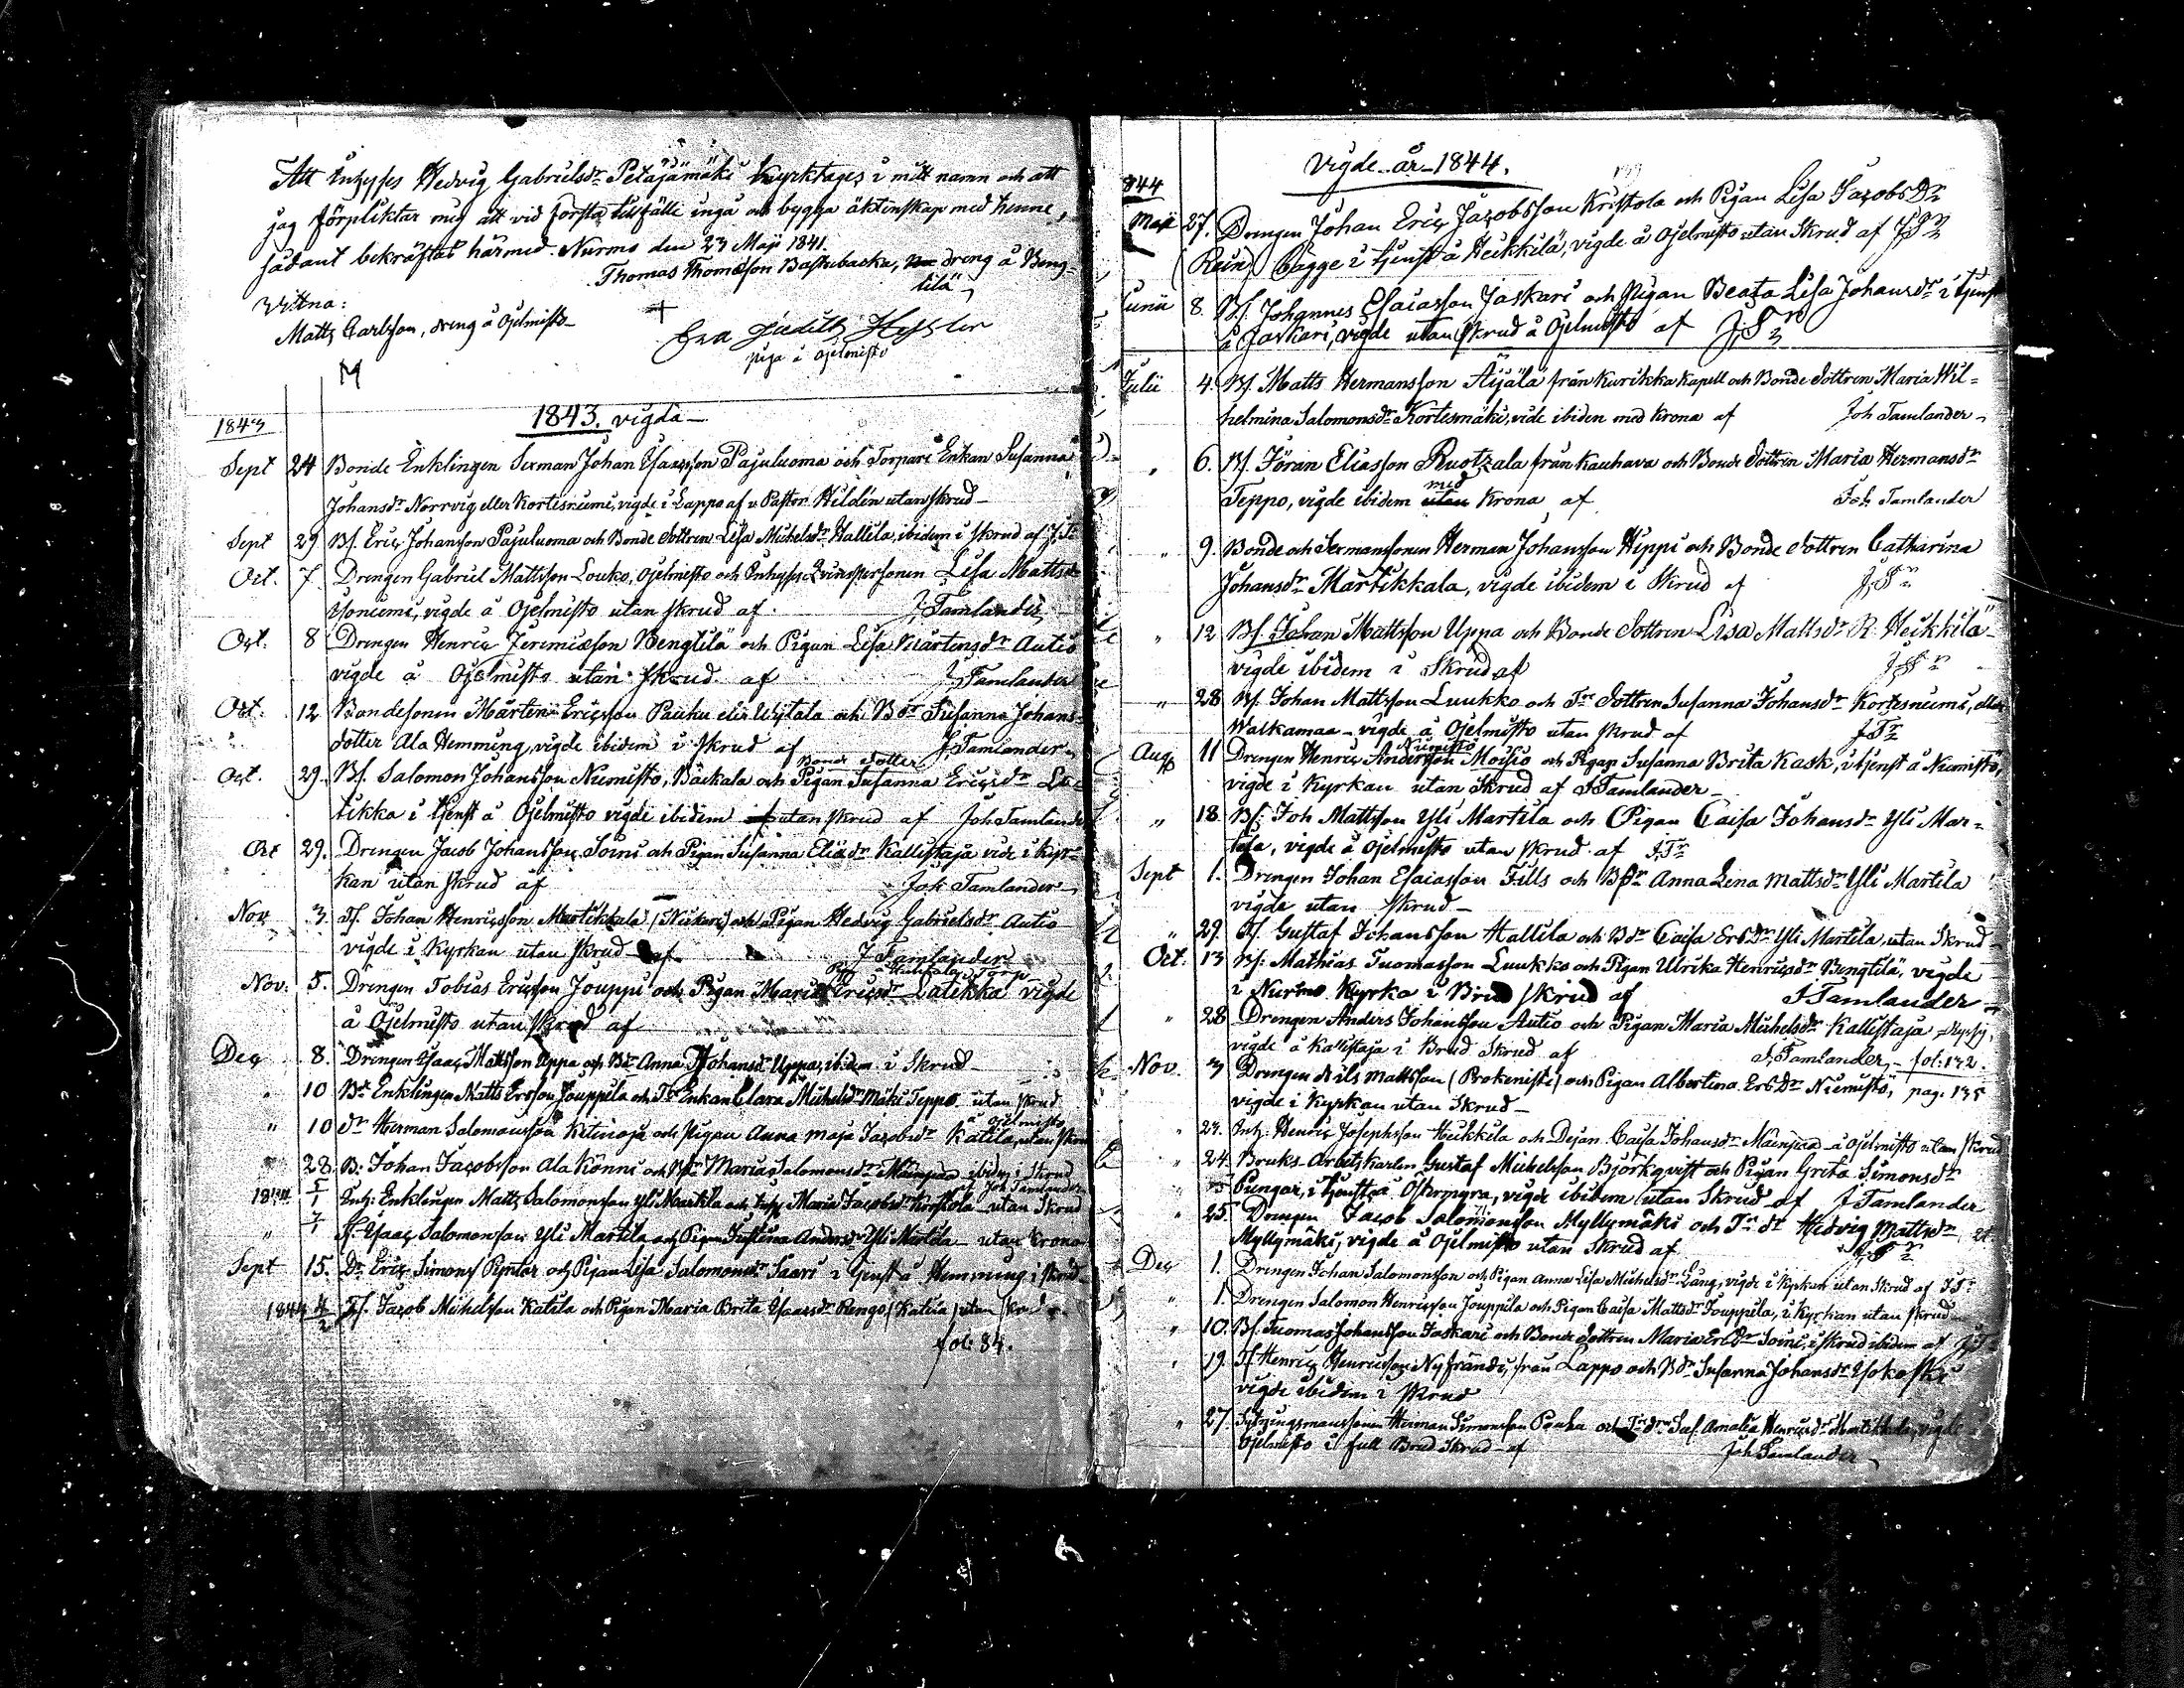 Att Inhyses Hedvig Gabrielsdr Petäjämäki kyrktages i mitt namn och att
jag förpliktar mig att vid första tillfälle ingå och bygga äktenskap med henne,
sådant bekräftas härmed. Nurmo den 23 Maji 1841.
Thomas Thomasson Bastubacka, dreng å Beng=
tilä
Vittna:
Matts Carlsson, dreng å Ojelmisto
Eva Judith Hessler
piga å Ojelmisto
1843. vigda
1843
Sept 24 Bonde Enklingen Sexman Johan Esaasson Pajuluoma och Torpare Enkan Susanna
Johansdr Norrvig eller Kortesniemi, vigde i Lappo af v. Pastor Hildén utan skrud
Sept 29 Bs. Eric Johansson Pajuluoma och Bonde dottren Lisa Michelsdr Hallila, ibidem i skrud af J.Tr
Oct. 7. Drengen Gabriel Mattsson Louko, Ojelmisto och Inhyses Qvinspersonen Lisa Mattsdr
Isoniemi, vigde å Ojelmisto utan skrud af J Tamlander
Oct. 8 Drengen Henric Jeremiæson Bengtilä och Pigan Lisa Mårtensdr Autio
vigde å Ojelmisto utan skrud af J Tamlander
Oct. 12 Bondesonen Mårten Ericsson Pauhu eller Wiitala och Bdr Susanna Johans=
dotter Ala Hemming, vigde ibidem i skrud af J Tamlander
Bonde dotter
Oct. 29. Bs. Salomon Johansson Niemistö, Bäckala och Pigan Susanna Ericsdr La=
tikka i tjenst å Ojelmisto vigde ibidem utan skrud af Joh Tamlander
Oct 29. Drengen Jacob Johansson Soini och Pigan Susanna Eliædr Kallistaja vide i kyr=
kan utan skrud af Joh Tamlander
Nov 3. Johan Henricsson Martikkala (Niskari) och Pigan Hedvig Gabrielsdr Autio
vigde i Kyrkan utan skrud af J Tamlander
Nov. 5. Drengen Tobias Ericsson Jouppi och Pigan Maria Ericsdr Latikka vigde
å Ojelmisto utan skrud af
Dec 8. Drengen Esaac Mattsson Uppa och Bdr Anna Johansdr Uppa, ibidem i skrud
" 10 Bd Enklingen Matts Ersson Jouppila och Tr Enkan Clara Michelsdr Mäki Teppo utan skrud
å Ojelmisto
" 10 dr Herman Salomonsson Ketinoja och Pigan Anna Maja Jacobsdr Katila, utan skrud
" 28. B: Johan Jacobsson Ala Könni och Bdr Maria Salomonsdr Mäenpää ibidem i skrud
af Joh Tamlander
1844 5/1 Inh: Enklingen Matts Salomonsson Yli Martila och Inh Maria Jacobsdr Kristola utan skrud
" 7/1 Esaac Salomonsson Yli Martila och Pigan Justina Andersdr Yli Martila utan krona
Sept 15. Dr Eric Simons Pyntar och Pigan Lisa Salomonsdr Saari i tjenst å Hemming i skrud
1844 4/2 Jacob Michelsson Katila och Pigan Maria Brita Esaasdr Rengo (Katila) utan skrud
fol. 84.
Vigde år 1844.
1844
Maji 27. Drengen Johan Eric Jacobsson Kristola och Pigan Lisa Jacobsdr
(Rein) bägge i tjenst å Heikkilä, vigde å Ojelmisto utan skrud af J Tr
Junii 8. Bs. Johannes Esaiasson Jaskari och Pigan Beata Lisa Johansdr i tjenst
å Jaskari, vigde utan skrud å Ojelmisto af J Tr
Julii 4. Bs. Matts Hermansson Äijälä från Kurikka Kapell och Bonde dottren Maria Wil=
helmina Salomonsdr Kortesmäki, vide ibidem med krona af Joh Tamlander
" 6. Bs. Jöran Eliasson Ruotzala från Kauhava och Bonde dottren Maria Hermansdr
Teppo, vigde ibidem utan med Krona af Joh. Tamlander
" 9. Bonde och Sexmanssonen Herman Johansson Hippi och Bonde dottren Catharina
Johansdr Martikkala, vigde ibidem i skrud af J.Tr
" 12 Bs. Johan Mattsson Uppa och Bonde dottren Lisa Mattsdr R. Heikkilä
vigde ibidem i skrud af J.Tr
" 28 Bs. Johan Mattsson Luukko och Tr dottren Susanna Johansdr Kortesniemi, eller
Walkamaa vigde å Ojelmisto utan skrud af J.Tr
Niemistö
Aug 11 Drengen Henric Andersson Moisio och Pigan Susanna Brita Kask, i tjenst å Niemistö,
vigde i Kyrkan utan skrud af J Tamlander
" 18 Bs: Joh Mattsson Yli Martila och Pigan Caisa Johansdr Yli Mar=
tila, vigde å Ojelmisto utan skrud af J.Tr
Sept 1. Drengen Johan Esaiasson Fills och Bdr Anna Lena Mattsdr Yli Martila
vigde utan skrud
" 29. Gustaf Johansson Hallila och Bdr Caisa Ersdr Yli Martila, utan skrud
Oct. 13 Bs: Mathias Tuomasson Luukko och Pigan Ulrika Henricsdr Bengtilä, vigde
i Nurmo Kyrka i Brud skrud af J Tamlander
" 28 Drengen Anders Johansson Autio och Pigan Maria Michelsdr Kallistaja
vigde å Kallistaja i Brud skrud af J. Tamlander, fol: 132.
Nov. 3 Drengen Nils Mattsson (Brokenisti) och Pigan Albertina Ersdr Niemistö, pag. 135
vigde i Kyrkan utan skrud
" 23. Inh: Henric Josephsson Heikkila och Pigan Caisa Johansdr Mäenpää å Ojelmisto utan skrud
" 24. Bruks Arbets karlen Gustaf Michelsson Björkqvist och Pigan Greta Simonsdr
Pungar, i tjenst å Östermyra, vigde ibidem utan skrud af J Tamlander
" 25. Drengen Jacob Salomonsson Myllymäki och Tr dr Hedvig Mattsdr
Myllymäki, vigde å Ojelmisto utan skrud af J. Tr
Dec 1. Drengen Johan Salomonsson och Pigan Anna Lisa Michelsdr Lång, vigde i Kyrkan utan skrud af J Tr
" 1. Drengen Salomon Henricsson Jouppila och Pigan Caisa Mattsdr Jouppila, i Kyrkan utan skrud
" 10. Bs. Tuomas Johansson Jaskari och Bonde dottren Maria Ersdr Soini, i skrud ibidem af J T
" 19. Henric Henricsson Nyfrände, från Lappo och Bdr Susanna Johansdr Ysokoski
vigde ibidem i skrud
" 27. Sytningsmanssonen Herman Simonsson Pouha och Tr dr Amalia Henricsdr Martikkala, vigde
Ojelmisto i full Brud skrud af Joh Tamlander